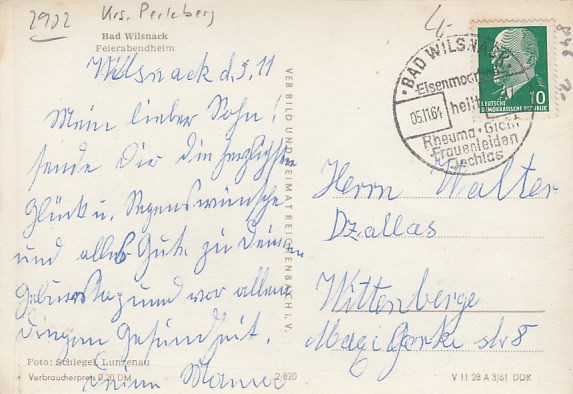 2902 Krs. Perleberg
4,-
Bad Wilsnack
Feierabendheim
Wilsnack d. 5. 11
Mein lieber Sohn!
sende Dir die herzlichsten
Glück u. Segenswünsche
und alles Gute zu Deinem
Geburtstag und vor allen
Dingen Gesundheit.
Deine Mama
Foto: Schlegel, Lunzenau
Verbraucherpreis 0,20 DM
2/820
VEB BILD UND HEIMAT REICHENBACH I. V.
BAD WILSNACK
Eisenmoorbad
heilt
05.11.61
Rheuma · Gicht
Frauenleiden
Ischias
DEUTSCHE
DEMOKRATISCHE REPUBLIK
10
Herrn Walter
Dzallas
Wittenberge
Max Gorki str 8
V 11 28 A 3/61 DDR